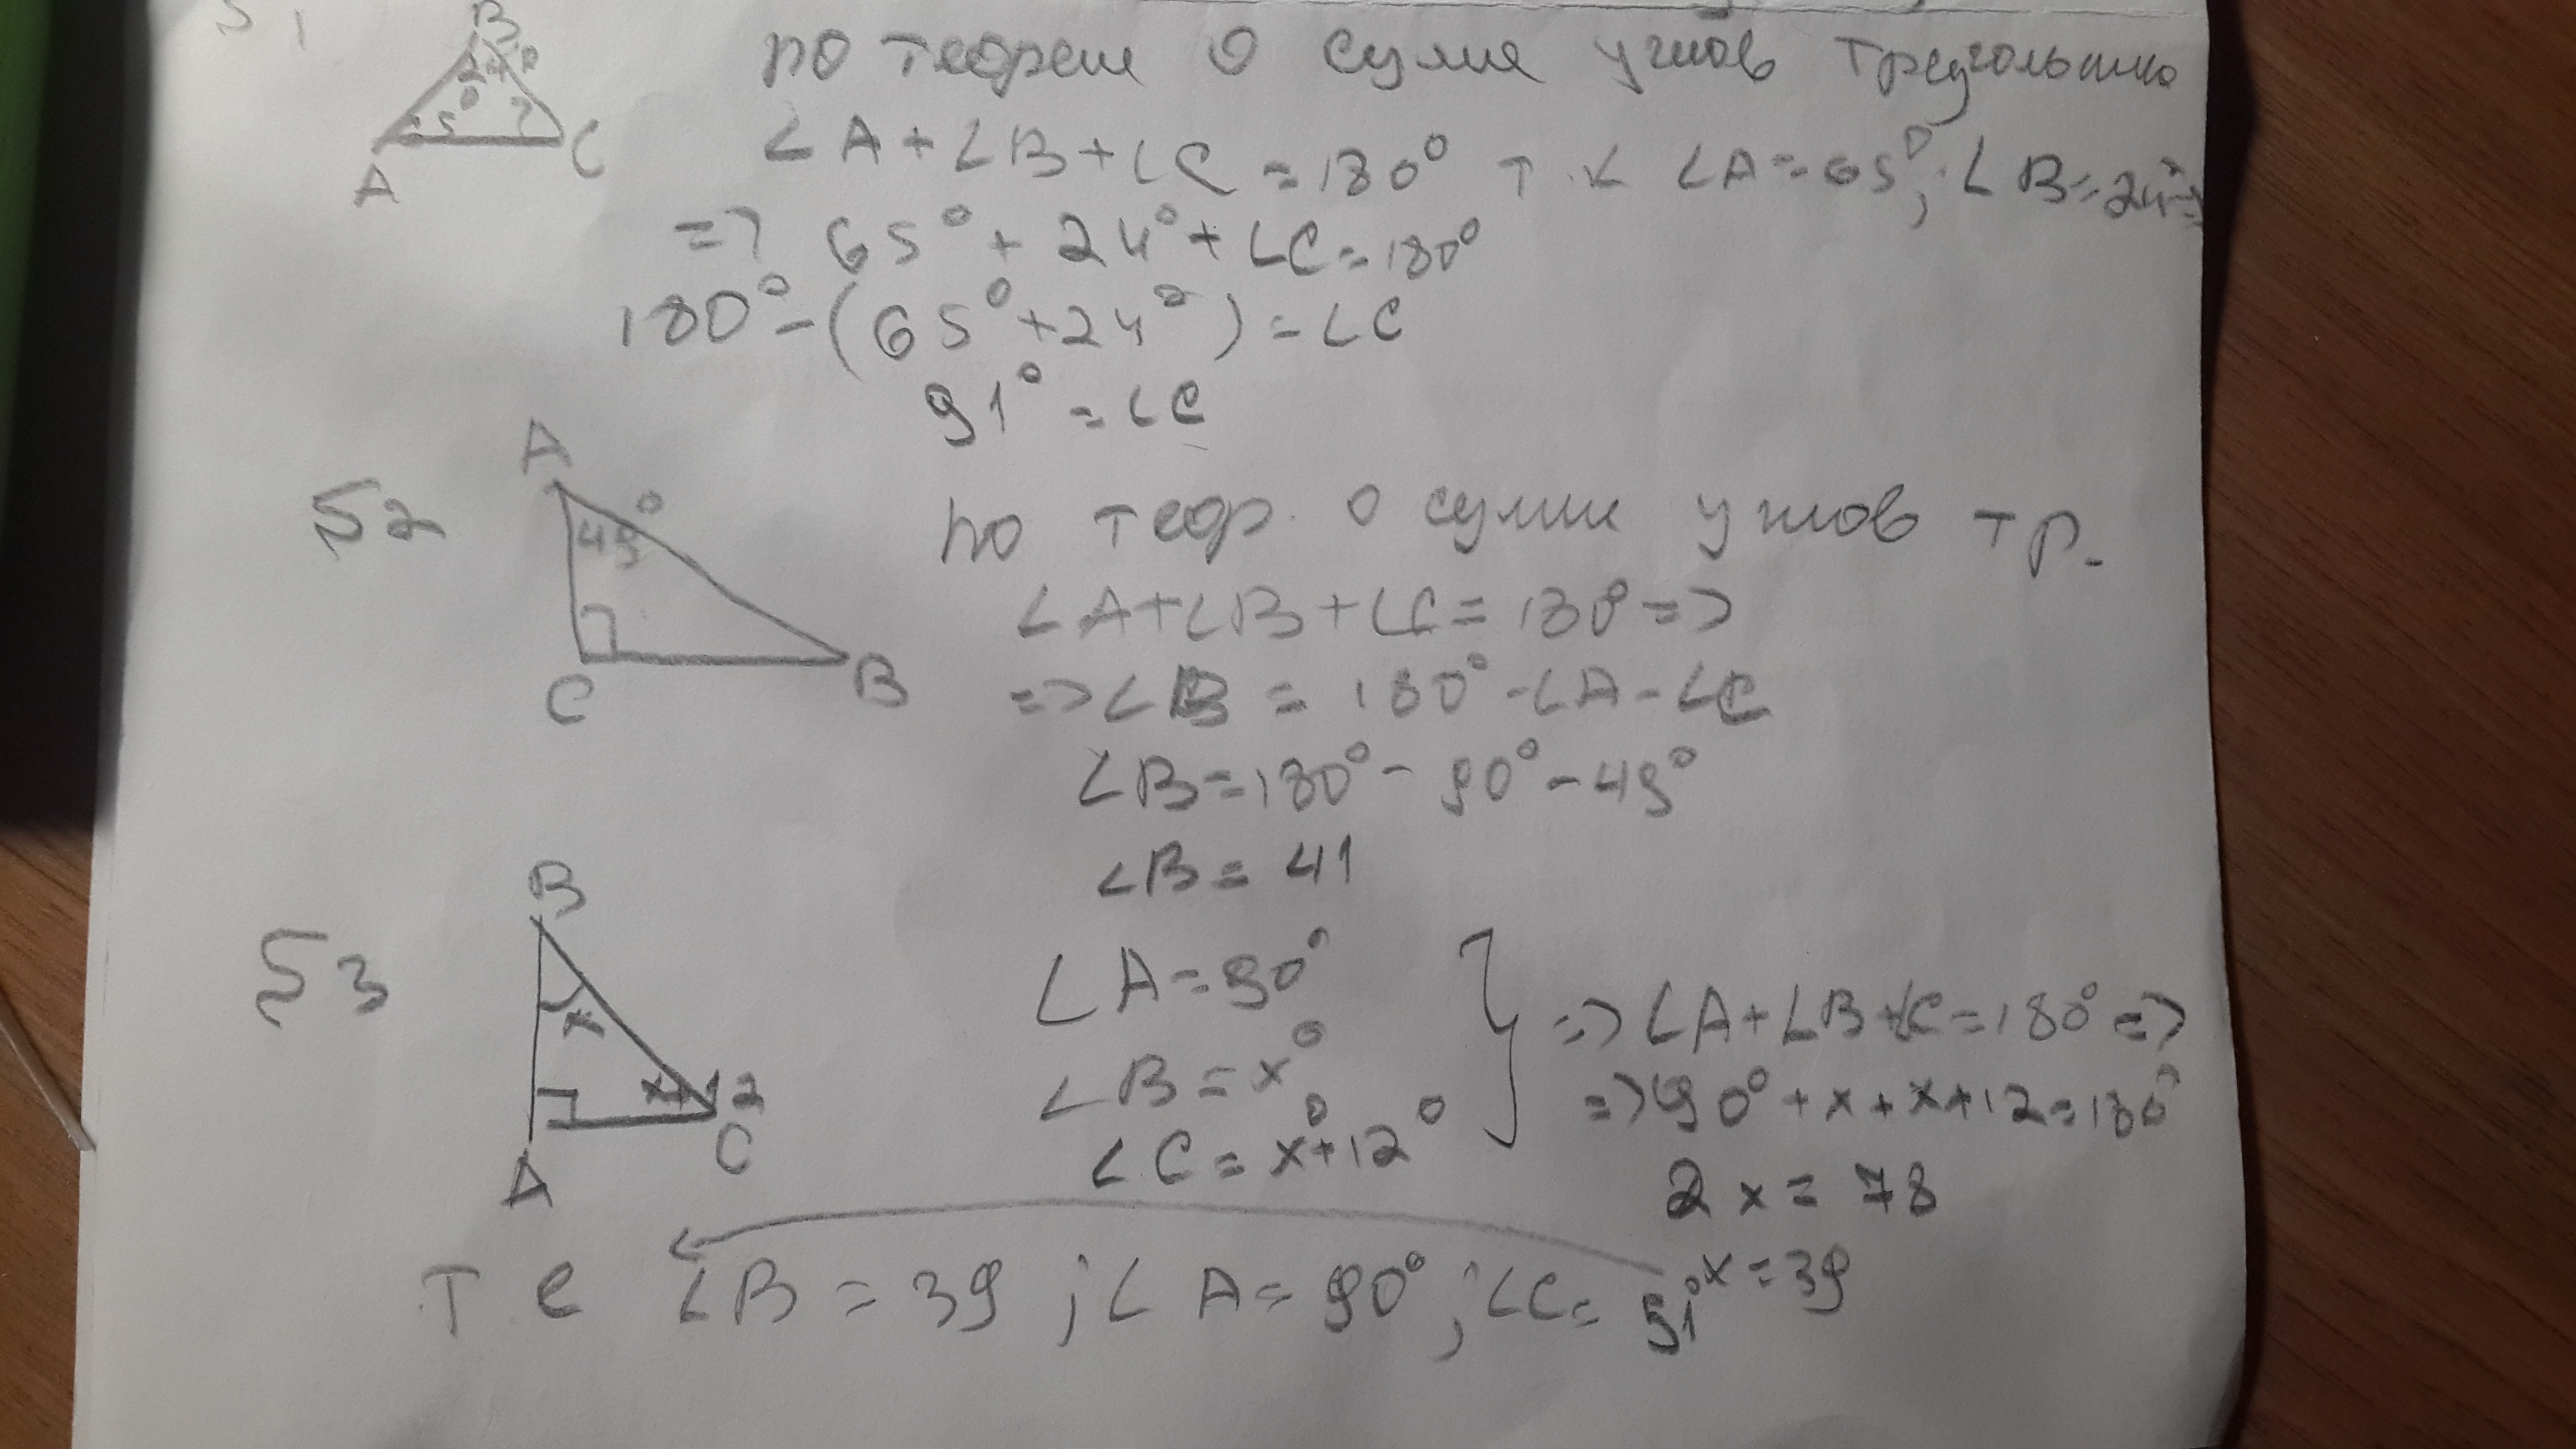 51
B
24°
65°
?
A
C
по теореме о сумме углов треугольника
∠A+∠B+∠C=180° т.к ∠A=65°; ∠B=24°=>
=> 65°+24°+∠C=180°
180°-(65°+24°)=∠C
91°=∠C
52
A
49°
C
B
по теор. о сумме углов тр.
∠A+∠B+∠C=180=>
=>∠B=180°-∠A-∠C
∠B=180°-90°-49°
∠B=41
53
B
x
x+12
A
C
∠A=90°
∠B=x°
∠C=x°+12°
} =>∠A+∠B+∠C=180°=>
=>90°+x+x+12=180°
2x=78
x=39
т е ∠B=39; ∠A=90°; ∠C=51°